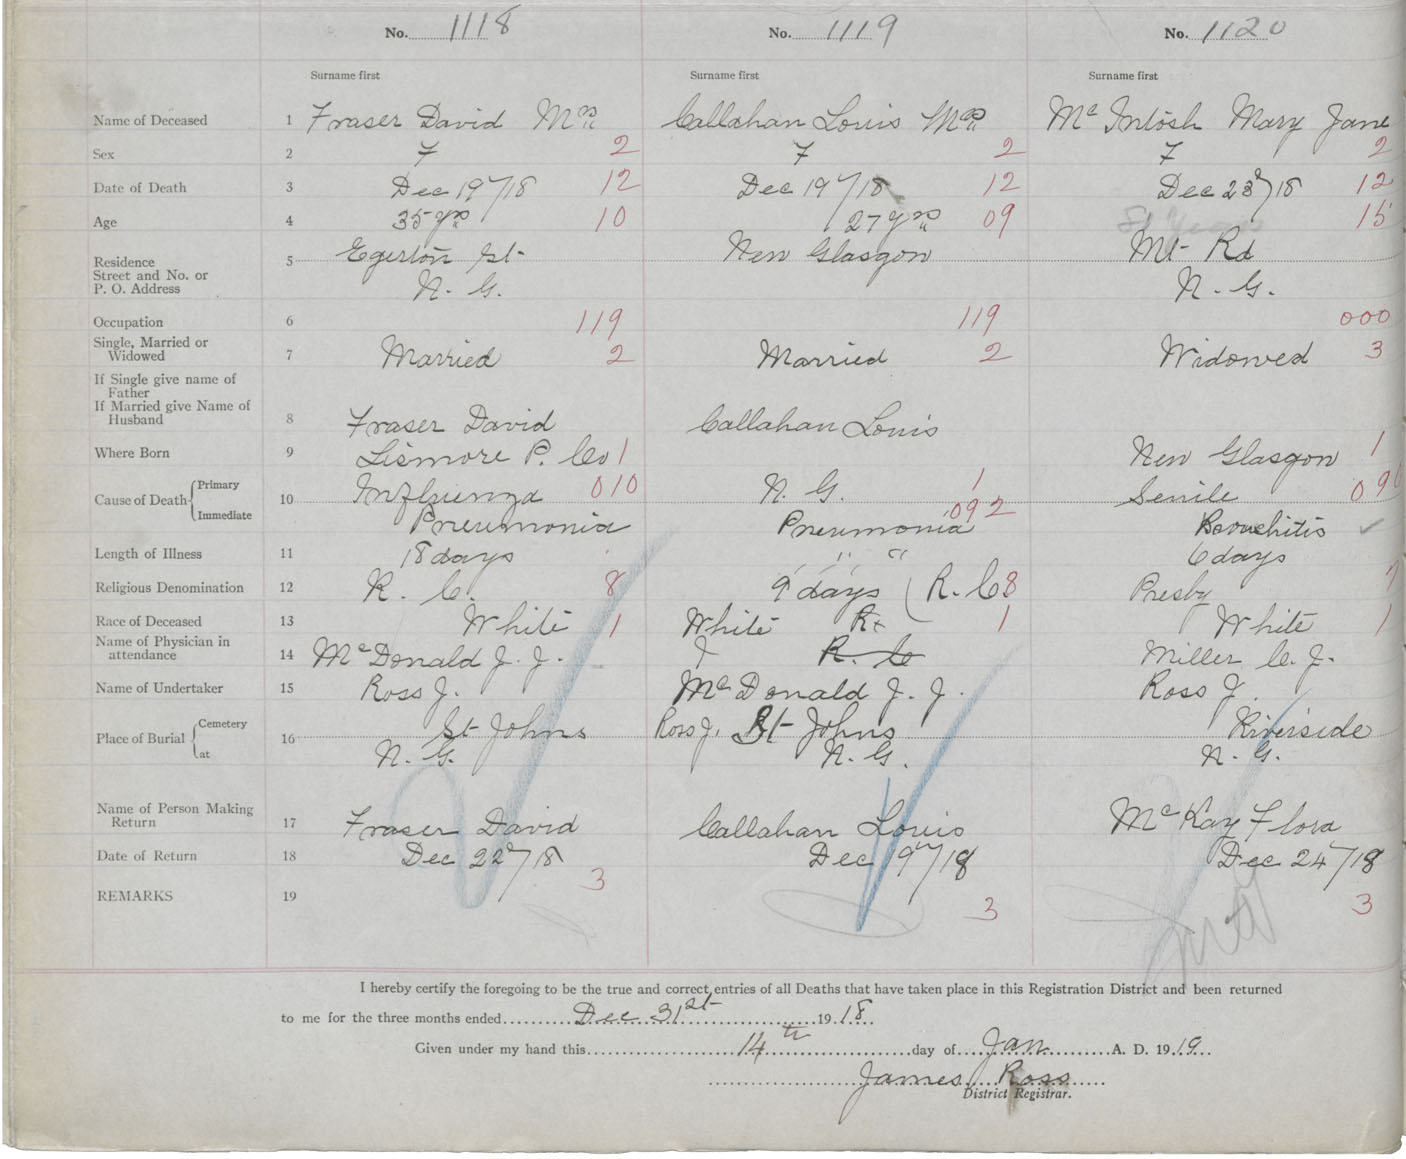 No. 1118 No. 1119 No. 1120
Surname first Surname first Surname first
Name of Deceased 1 Fraser David Mrs Callahan Louis Mrs Mc Intosh Mary Jane
Sex 2 F 2 F 2 F 2
Date of Death 3 Dec 19"/18 12 Dec 19"/18 12 Dec 23"/18 12
Age 4 35 yrs 10 27 yrs 09 81 Years 15
Residence
Street and No. or
P. O. Address
5 Egerton St- New Glasgow Mt Rd
N. G. N. G.
Occupation 6 119 119 000
Single, Married or
Widowed 7 Married 2 Married 2 Widowed 3
If Single give name of
Father
If Married give Name of
Husband 8 Fraser David Callahan Louis
Where Born 9 Lismore P. Co 1 New Glasgow 1
Cause of Death Primary
Immediate
10 Influenza 010 N. G. 1 Senile
Pneumonia Pneumonia 092 Bronchitis
Length of Illness 11 18 days " " 6 days
Religious Denomination 12 R. C. 8 9 days (R. C 8 Presby
Race of Deceased 13 White 1 White 1 White 1
Name of Physician in
attendance 14 McDonald J. J. R. C Miller C. J.
Name of Undertaker 15 Ross J. McDonald J. J. Ross J.
Place of Burial Cemetery
at
16 St Johns Ross J. St Johns Riverside
N. G. N. G. N. G.
Name of Person Making
Return 17 Fraser David Callahan Louis McKay Flora
Date of Return 18 Dec 22"/18 Dec 19"/18 Dec 24"/18
3 3 3
REMARKS 19
I hereby certify the foregoing to be the true and correct entries of all Deaths that have taken place in this Registration District and been returned
to me for the three months ended Dec 31st 1918
Given under my hand this 14th day of Jan A. D. 1919
James Ross
District Registrar.